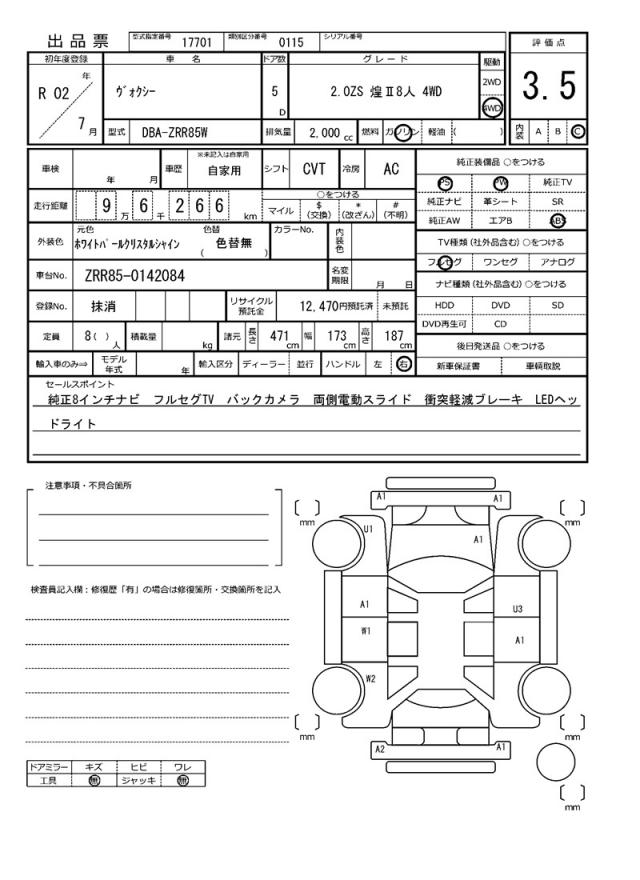 出品票
型式指定番号 17701 類別区分番号 0115 シリアル番号
評価点
3.5
内装 A B C
初年度登録 車名 ドア数 グレード 駆動
R 02 年 7 月
ヴォクシー
5 D
2.0ZS 煌Ⅱ8人 4WD
2WD
4WD
型式 DBA-ZRR85W 排気量 2,000 cc 燃料 ガソリン 軽油 ( )
車検 年 月 車歴 ※未記入は自家用 自家用 シフト CVT 冷房 AC
走行距離 9 万 6 千 2 6 6 km
○をつける
マイル $(交換) *(改ざん) #(不明)
外装色 元色 ホワイトパールクリスタルシャイン 色替 ( 色替無 ) カラーNo. 内装色
車台No. ZRR85-0142084 名変期限 月 日
登録No. 抹消 リサイクル預託金 12,470円預託済 未預託
定員 8( )人 積載量 kg 諸元 長さ 471 cm 幅 173 cm 高さ 187 cm
輸入車のみ⇒ モデル年式 年 輸入区分 ディーラー 並行 ハンドル 左 右
純正装備品 ○をつける
PS PW 純正TV
純正ナビ 革シート SR
純正AW エアB ABS
TV種類(社外品含む) ○をつける
フルセグ ワンセグ アナログ
ナビ種類(社外品含む) ○をつける
HDD DVD SD
DVD再生可 CD
後日発送品 ○をつける
新車保証書 車輌取説
セールスポイント
純正8インチナビ フルセグTV バックカメラ 両側電動スライド 衝突軽減ブレーキ LEDヘッ
ドライト
注意事項・不具合箇所
検査員記入欄：修復歴「有」の場合は修復箇所・交換箇所を記入
A1 A1
mm mm
U1 A1
A1 U3
W1 A1
W2
mm mm
A2 A1
mm
ドアミラー キズ ヒビ ワレ
工具 無 ジャッキ 無